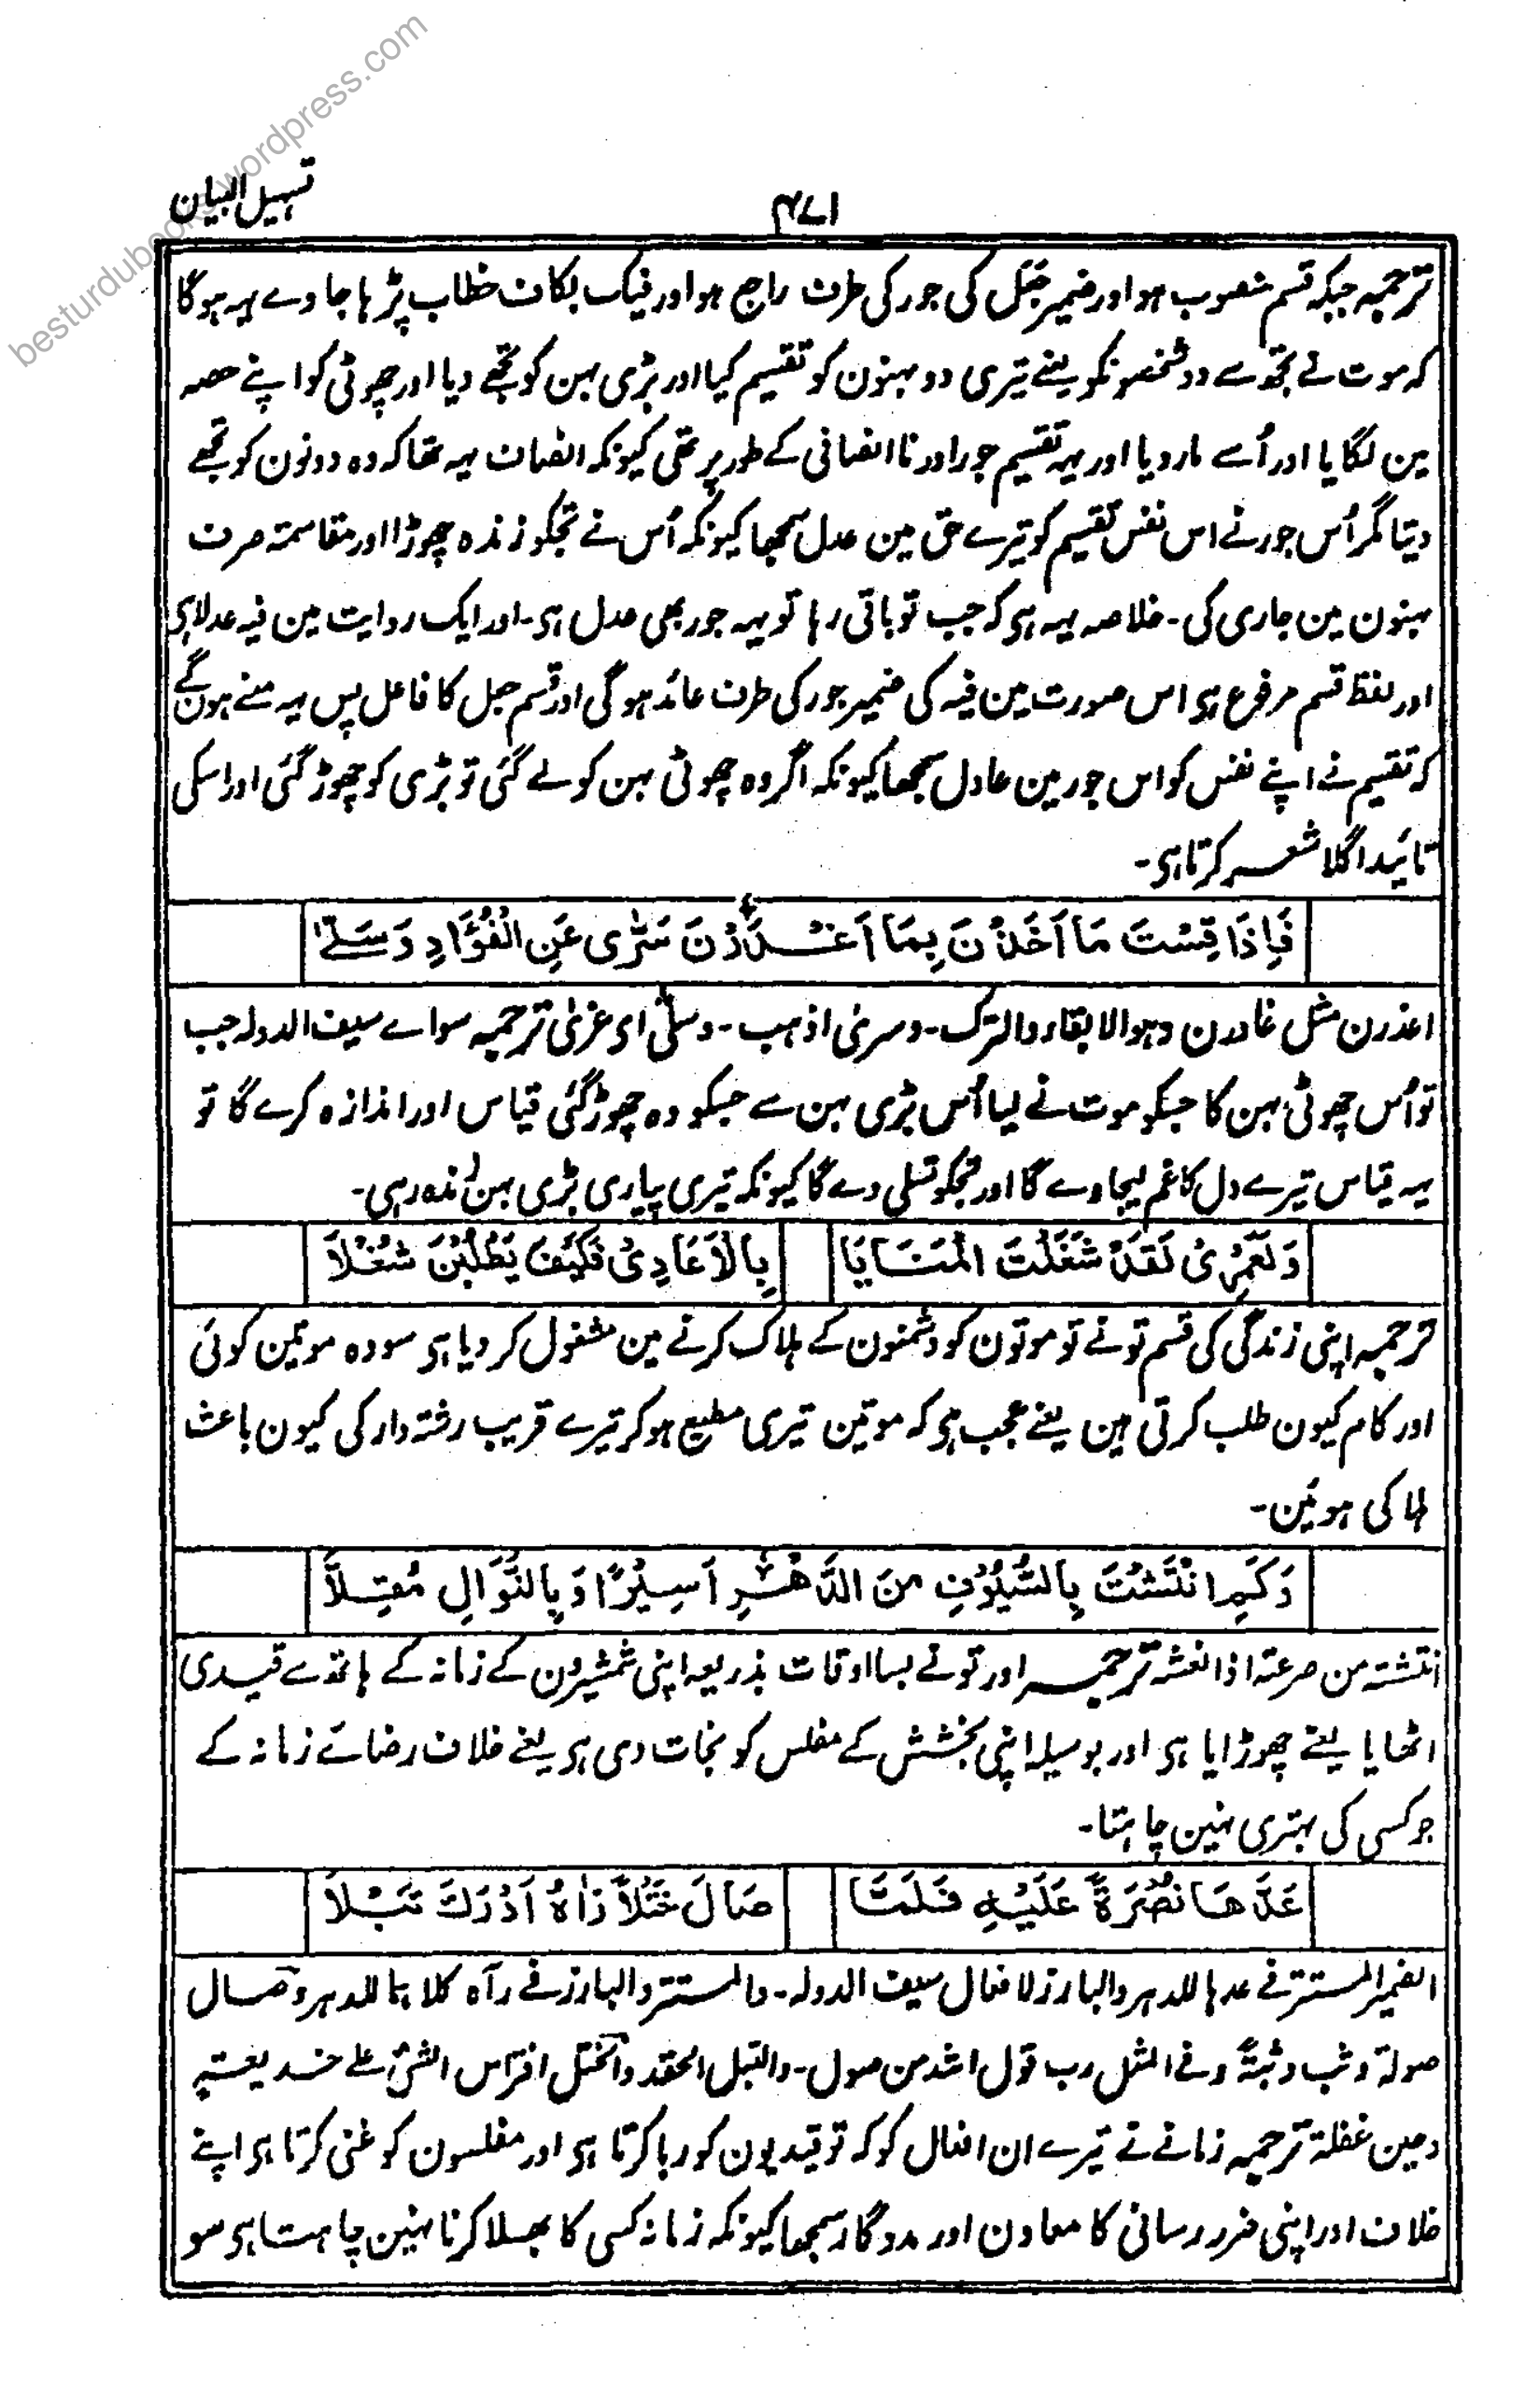 besturdubooks.wordpress.com
تسہیل البیان
۴۷۱
ترجمہ جبکہ قسم منصوب ہو اور ضمیر جَعَل کی جور کی طرف راجع ہو اور فیک بکاف خطاب پڑہا جاوے یہہ ہوگا
کہ موت نے تجھسے دو شخصونکو یعنے تیری دو بہنون کو تقسیم کیا اور بڑی بہن کو تجھے دیا اور چھوٹی کو اپنے حصہ
مین لگایا اور اُسے مار دیا اور یہہ تقسیم جور اور ناانصافی کے طور پر تھی کیونکہ انصاف یہہ تھا کہ وہ دونون کو تجھے
دیتا مگر اُس جور نے اس نفس تقسیم کو تیرے حق مین عدل سمجھا کیونکہ اُس نے تجکو زندہ چھوڑا اور مقاسمۃ صرف
بہنون مین جاری کی۔ خلاصہ یہہ ہی کہ جب تو باقی رہا تو یہہ جور بھی عدل ہی۔ اور ایک روایت مین فیہ عدلا ہی
اور لفظ قسم مرفوع ہی اس صورت مین فیہ کی ضمیر جور کی طرف عائد ہوگی اور قسم جعل کا فاعل پس یہہ معنے ہون گے
کہ تقسیم نے اپنے نفس کو اس جور مین عادل سمجھا کیونکہ اگر وہ چھوٹی بہن کو لے گئی تو بڑی کو چھوڑ گئی اور اسکی
تائید اگلا شعر کرتا ہی۔
فَاِذَا قِسْتَ مَا اَخَذْنَ بِمَا اَغْدَرْنَ سَرّٰى عَنِ الْفُؤَادِ وَسَلّٰى
اغدرن مثل غادرن وہو الابقاء والترک۔ وسریٰ اذہب۔ وسلّٰی ای عزیٰ ترجمہ سو اے سیف الدولہ جب
تو اُس چھوٹی بہن کا جسکو موت نے لیا اُس بڑی بہن سے جسکو وہ چھوڑ گئی قیاس اور اندازہ کرے گا تو
یہہ قیاس تیرے دل کا غم لیجاوے گا اور تجکو تسلی دے گا کیونکہ تیری پیاری بڑی بہن زندہ رہی۔
وَلَعَمْرِیْ لَقَدْ شَغَلْتَ الْمَنَایَا بِالْاَعَادِیْ فَکَیْفَ یَطْلُبْنَ شُغْلَا
ترجمہ اپنی زندگی کی قسم تو نے تو موتون کو دشمنون کے ہلاک کرنے مین مشغول کر دیا ہی سو وہ موتین کوئی
اور کام کیون طلب کرتی ہین یعنے عجب ہی کہ موتین تیری مطیع ہو کر تیرے قریب رشتہ دار کی کیون باعث
ہلاکی ہوئین۔
وَکَمِ انْتَشْتَ بِالسُّیُوْفِ مِنَ الدَّهْرِ اَسِیْرًا وَبِالنَّوَالِ مُقِلَّا
انتشتہ من صرعتہ اذا نعشتہ ترجمہ اور تو نے بسا اوقات بذریعہ اپنی شمشیرون کے زمانہ کے ہاتھ سے قیدی
اٹھایا یعنے چھوڑایا ہی اور بوسیلہ اپنی بخشش کے مفلس کو نجات دی ہی یعنے خلاف رضائے زمانہ کے
جو کسی کی بہتری نہین چاہتا۔
عَدَّهَا نُصْرَةً عَلَیْهِ فَلَمَّا صَالَ خَتْلًا رَاٰهُ اَدْرَكَ تَبْلَا
الضمیر المستتر فے عدہا للدہر والبارز لافعال سیف الدولہ۔ والمستتر والبارز فے رآہ کلاہما للدہر وصال
صولۃ وثب وثبۃً وفے المثل رب قول اشد من صول۔ والتبل الحقد والختل افتراس الشئ علے خدیعتہ
وحین غفلۃ ترجمہ زمانے نے تیرے ان افعال کو کہ تو قیدیون کو رہا کرتا ہی اور مفلسون کو غنی کرتا ہی اپنے
خلاف اور اپنی ضرر رسانی کا معاون اور مددگار سمجھا کیونکہ زمانہ کسی کا بھلا کرنا نہین چاہتا ہی سو